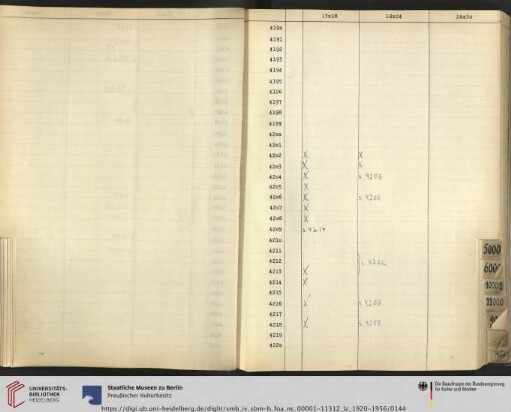 13x18 18x24 24x30
4190
4191
4192
4193
4194
4195
4196
4197
4198
4199
4200
4201
4202 X X
4203 X x
4204 X s. 4203
4205 X
4206 X
4207 X
4208 X
4209
4210
4211
4212
4213 X
4214 X
4215
4216 X s. 4203
4217
4218 X
4219
4220
5000
6000
10000
11000
UNIVERSITÄTS-
BIBLIOTHEK
HEIDELBERG
Staatliche Museen zu Berlin
Preußischer Kulturbesitz
Die Beauftragte der Bundesregierung
für Kultur und Medien
https://digi.ub.uni-heidelberg.de/diglit/smb_iv_sbm-b_foa_nc_00001-11312_lz_1920-1956/0144